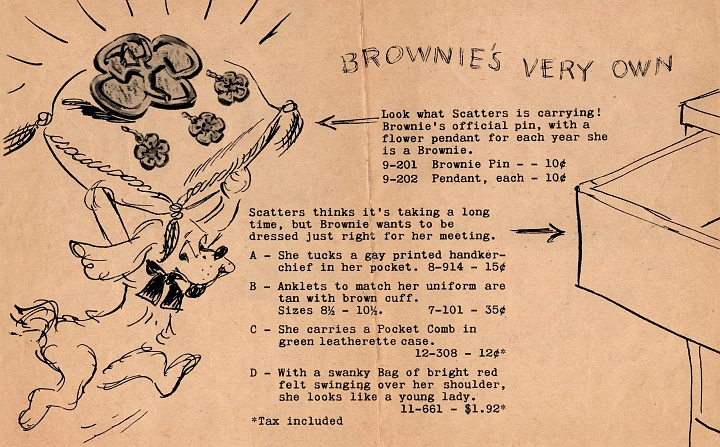 BROWNIE'S VERY OWN
Look what Scatters is carrying!
Brownie's official pin, with a
flower pendant for each year she
is a Brownie.
9-201 Brownie Pin - - 10¢
9-202 Pendant, each - 10¢
Scatters thinks it's taking a long
time, but Brownie wants to be
dressed just right for her meeting.
A - She tucks a gay printed handker-
chief in her pocket. 8-914 - 15¢
B - Anklets to match her uniform are
tan with brown cuff.
Sizes 8½ - 10½. 7-101 - 35¢
C - She carries a Pocket Comb in
green leatherette case.
12-308 - 12¢*
D - With a swanky Bag of bright red
felt swinging over her shoulder,
she looks like a young lady.
11-661 - $1.92*
*Tax included